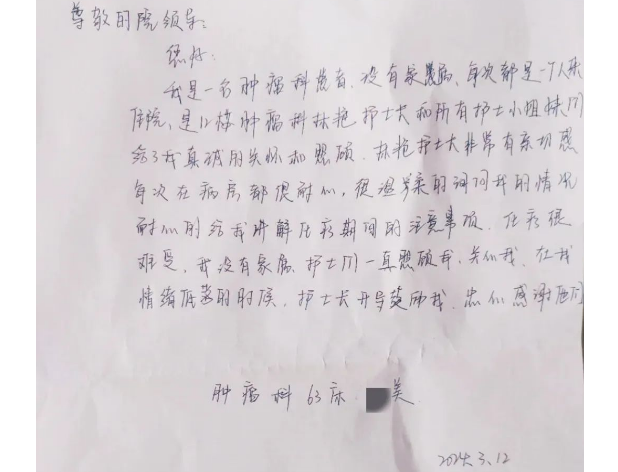 尊敬的院领导：
您好：
我是一名肿瘤科患者，没有家属，每次都是一个人来
住院，是12楼肿瘤科林艳护士长和所有护士小姐妹们
给了我真诚的关怀和照顾，林艳护士长非常有亲切感
每次在病房都很耐心，很温柔的询问我的情况
耐心的给我讲解化疗期间的注意事项，化疗很
难受，我没有家属，护士们一直照顾我，关心我，在我
情绪低落的时候，护士长开导鼓励我，忠心感谢她们
肿瘤科63床 美
2024.3.12